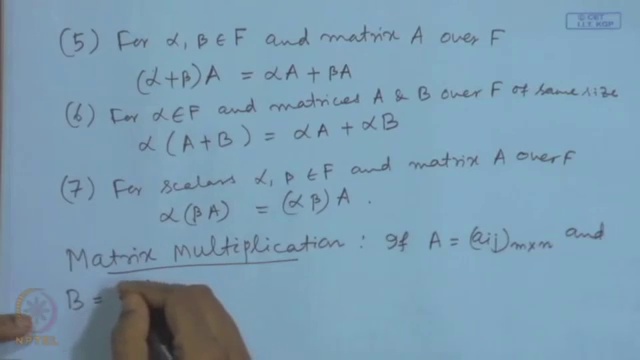 © CET
I.I.T. KGP
(5) For α, β ∈ F and matrix A over F
(α+β)A = αA + βA
(6) For α∈F and matrices A & B over F of same size
α(A+B) = αA + αB
(7) For scalars α, β ∈ F and matrix A over F
α(βA) = (αβ)A.
Matrix Multiplication : If A = (aij)m×n and
B =
NPTEL